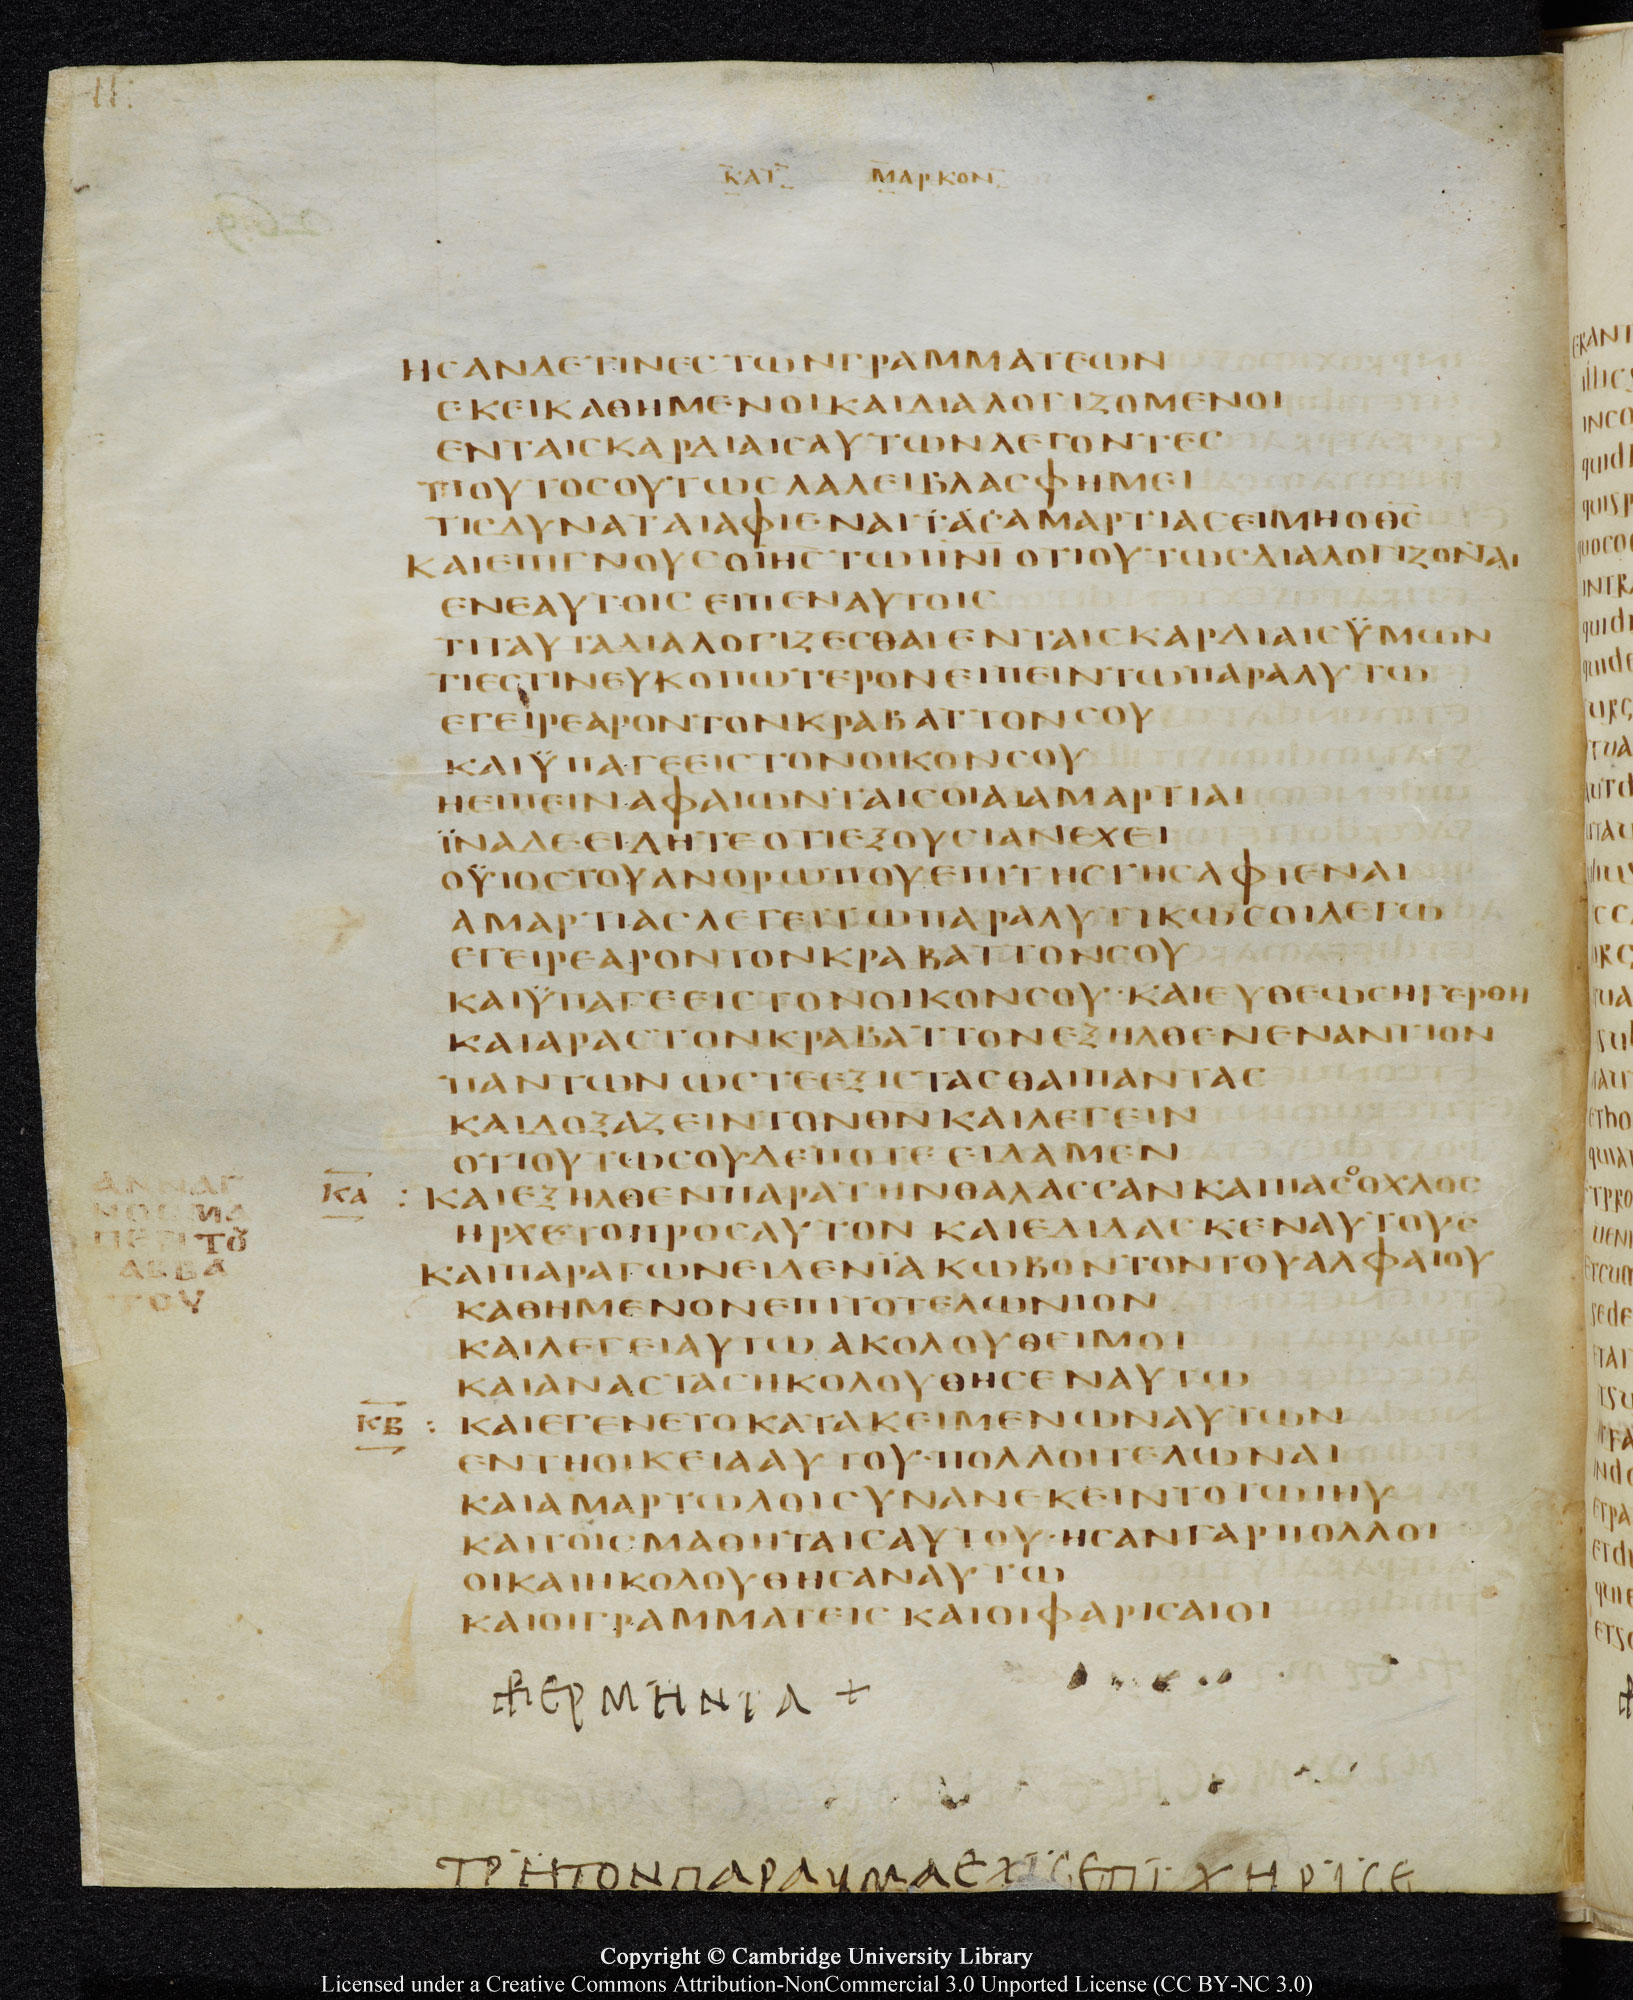 ΚΑΤ ΜΑΡΚΟΝ
ΗСΑΝΔΕΤΙΝΕСΤωΝΓΡΑΜΜΑΤΕωΝ
ΕΚΕΙΚΑΘΗΜΕΝΟΙΚΑΙΔΙΑΛΟΓΙΖΟΜΕΝΟΙ
ΕΝΤΑΙСΚΑΡΔΙΑΙСΑΥΤωΝΛΕΓΟΝΤΕС
ΤΙΟΥΤΟСΟΥΤωСΛΑΛΕΙΒΛΑСΦΗΜΕΙ
ΤΙСΔΥΝΑΤΑΙΑΦΙΕΝΑΙΤΑСΑΜΑΡΤΙΑСΕΙΜΗΟΘС
ΚΑΙΕΠΙΓΝΟΥСΟΙΗСΤωΠΝΙ ΟΤΙΟΥΤωСΔΙΑΛΟΓΙΖΟΝΑΙ
ΕΝΕΑΥΤΟΙС ΕΙΠΕΝΑΥΤΟΙС
ΤΙΤΑΥΤΑΔΙΑΛΟΓΙΖΕСΘΑΙΕΝΤΑΙСΚΑΡΔΙΑΙСΫΜωΝ
ΤΙΕСΤΙΝΕΥΚΟΠωΤΕΡΟΝΕΙΠΕΙΝΤωΠΑΡΑΛΥΤω
ΕΓΕΙΡΕΑΡΟΝΤΟΝΚΡΑΒΑΤΤΟΝСΟΥ
ΚΑΙΫΠΑΓΕΕΙСΤΟΝΟΙΚΟΝСΟΥ
ΗΕΙΠΕΙΝΑΦΑΙωΝΤΑΙСΟΙΑΙΑΜΑΡΤΙΑΙ
ΪΝΑΔΕΕΙΔΗΤΕΟΤΙΕΞΟΥСΙΑΝΕΧΕΙ
ΟΫΙΟСΤΟΥΑΝΘΡωΠΟΥΕΠΙΤΗСΓΗСΑΦΙΕΝΑΙ
ΑΜΑΡΤΙΑСΛΕΓΕΙΤωΠΑΡΑΛΥΤΙΚωСΟΙΛΕΓω
ΕΓΕΙΡΕΑΡΟΝΤΟΝΚΡΑΒΑΤΤΟΝСΟΥ
ΚΑΙΫΠΑΓΕΕΙСΤΟΝΟΙΚΟΝСΟΥ·ΚΑΙΕΥΘΕωСΗΓΕΡΘΗ
ΚΑΙΑΡΑСΤΟΝΚΡΑΒΑΤΤΟΝΕΞΗΛΘΕΝΕΝΑΝΤΙΟΝ
ΠΑΝΤωΝωСΤΕΕΞΙСΤΑСΘΑΙΠΑΝΤΑС
ΚΑΙΔΟΞΑΖΕΙΝΤΟΝΘΝΚΑΙΛΕΓΕΙΝ
ΟΤΙΟΥΤωСΟΥΔΕΠΟΤΕ ΕΙΔΑΜΕΝ
ΑΝΝΑΓ
ΝΟСΜΑ
ΠΕΡΙΤȢ
ΑСΒΑ
ΤΟΥ
ΚΑ : ΚΑΙΕΞΗΛΘΕΝΠΑΡΑΤΗΝΘΑΛΑССΑΝΚΑΙΠΑСΟΟΧΛΟС
ΗΡΧΕΤΟΠΡΟСΑΥΤΟΝ ΚΑΙΕΔΙΔΑСΚΕΝΑΥΤΟΥС
ΚΑΙΠΑΡΑΓωΝΕΙΔΕΝΪΑΚωΒΟΝΤΟΝΤΟΥΑΛΦΑΙΟΥ
ΚΑΘΗΜΕΝΟΝΕΠΙΤΟΤΕΛωΝΙΟΝ
ΚΑΙΛΕΓΕΙΑΥΤωΑΚΟΛΟΥΘΕΙΜΟΙ
ΚΑΙΑΝΑСΤΑСΗΚΟΛΟΥΘΗСΕΝΑΥΤω
ΚΒ : ΚΑΙΕΓΕΝΕΤΟΚΑΤΑΚΕΙΜΕΝωΝΑΥΤωΝ
ΕΝΤΗΟΙΚΕΙΑΑΥΤΟΥ·ΠΟΛΛΟΙΤΕΛωΝΑΙ
ΚΑΙΑΜΑΡΤωΛΟΙСΥΝΑΝΕΚΕΙΝΤΟΤωΙΗΥ
ΚΑΙΤΟΙСΜΑΘΗΤΑΙСΑΥΤΟΥ·ΗСΑΝΓΑΡΠΟΛΛΟΙ
ΟΙΚΑΙΗΚΟΛΟΥΘΗСΑΝΑΥΤω
ΚΑΙΟΙΓΡΑΜΜΑΤΕΙС ΚΑΙΟΙΦΑΡΙСΑΙΟΙ
ΕΡΜΗΝΙΑ +
ΤΡΗΤΟΝΠΑΡΑΥΜΑΕΧΙСΕΠΙΧΗΡΙСΕ
Copyright © Cambridge University Library
Licensed under a Creative Commons Attribution-NonCommercial 3.0 Unported License (CC BY-NC 3.0)